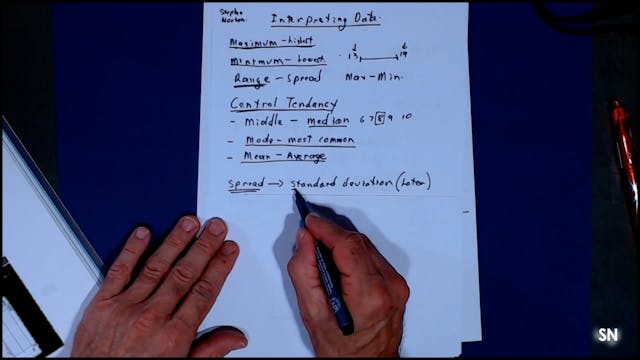 Stephen
Norton.
Interpreting Data.
Maximum - highest
Minimum - lowest. 13 19
Range - Spread Max - Min.
Central Tendency
- Middle - median 6 7 8 9 10
- Mode - most common
- Mean - Average
Spread → standard deviation (Later)
SN